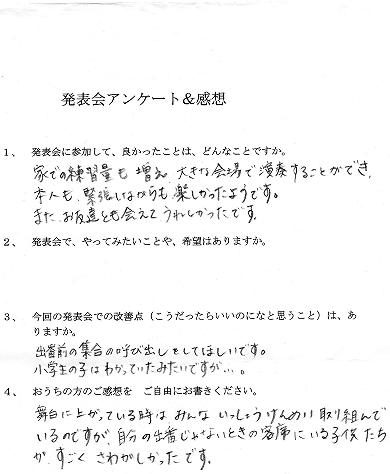 発表会アンケート＆感想
１、　発表会に参加して、良かったことは、どんなことですか。
家での練習量も増え、大きな会場で演奏することができ、
本人も、緊張しながらも楽しかったようです。
また、お友達とも会えてうれしかったです。
２、　発表会で、やってみたいことや、希望はありますか。
３、　今回の発表会での改善点（こうだったらいいのになと思うこと）は、あ
りますか。
出番前の集合の呼び出しをしてほしいです。
小学生の子はわかっていたみたいですが…。
４、　おうちの方のご感想を　ご自由にお書きください。
舞台に上がっている時はみんないっしょうけんめい取り組んで
いるのですが、自分の出番じゃないときの客席にいる子供たち
が、すごくさわがしかったです。